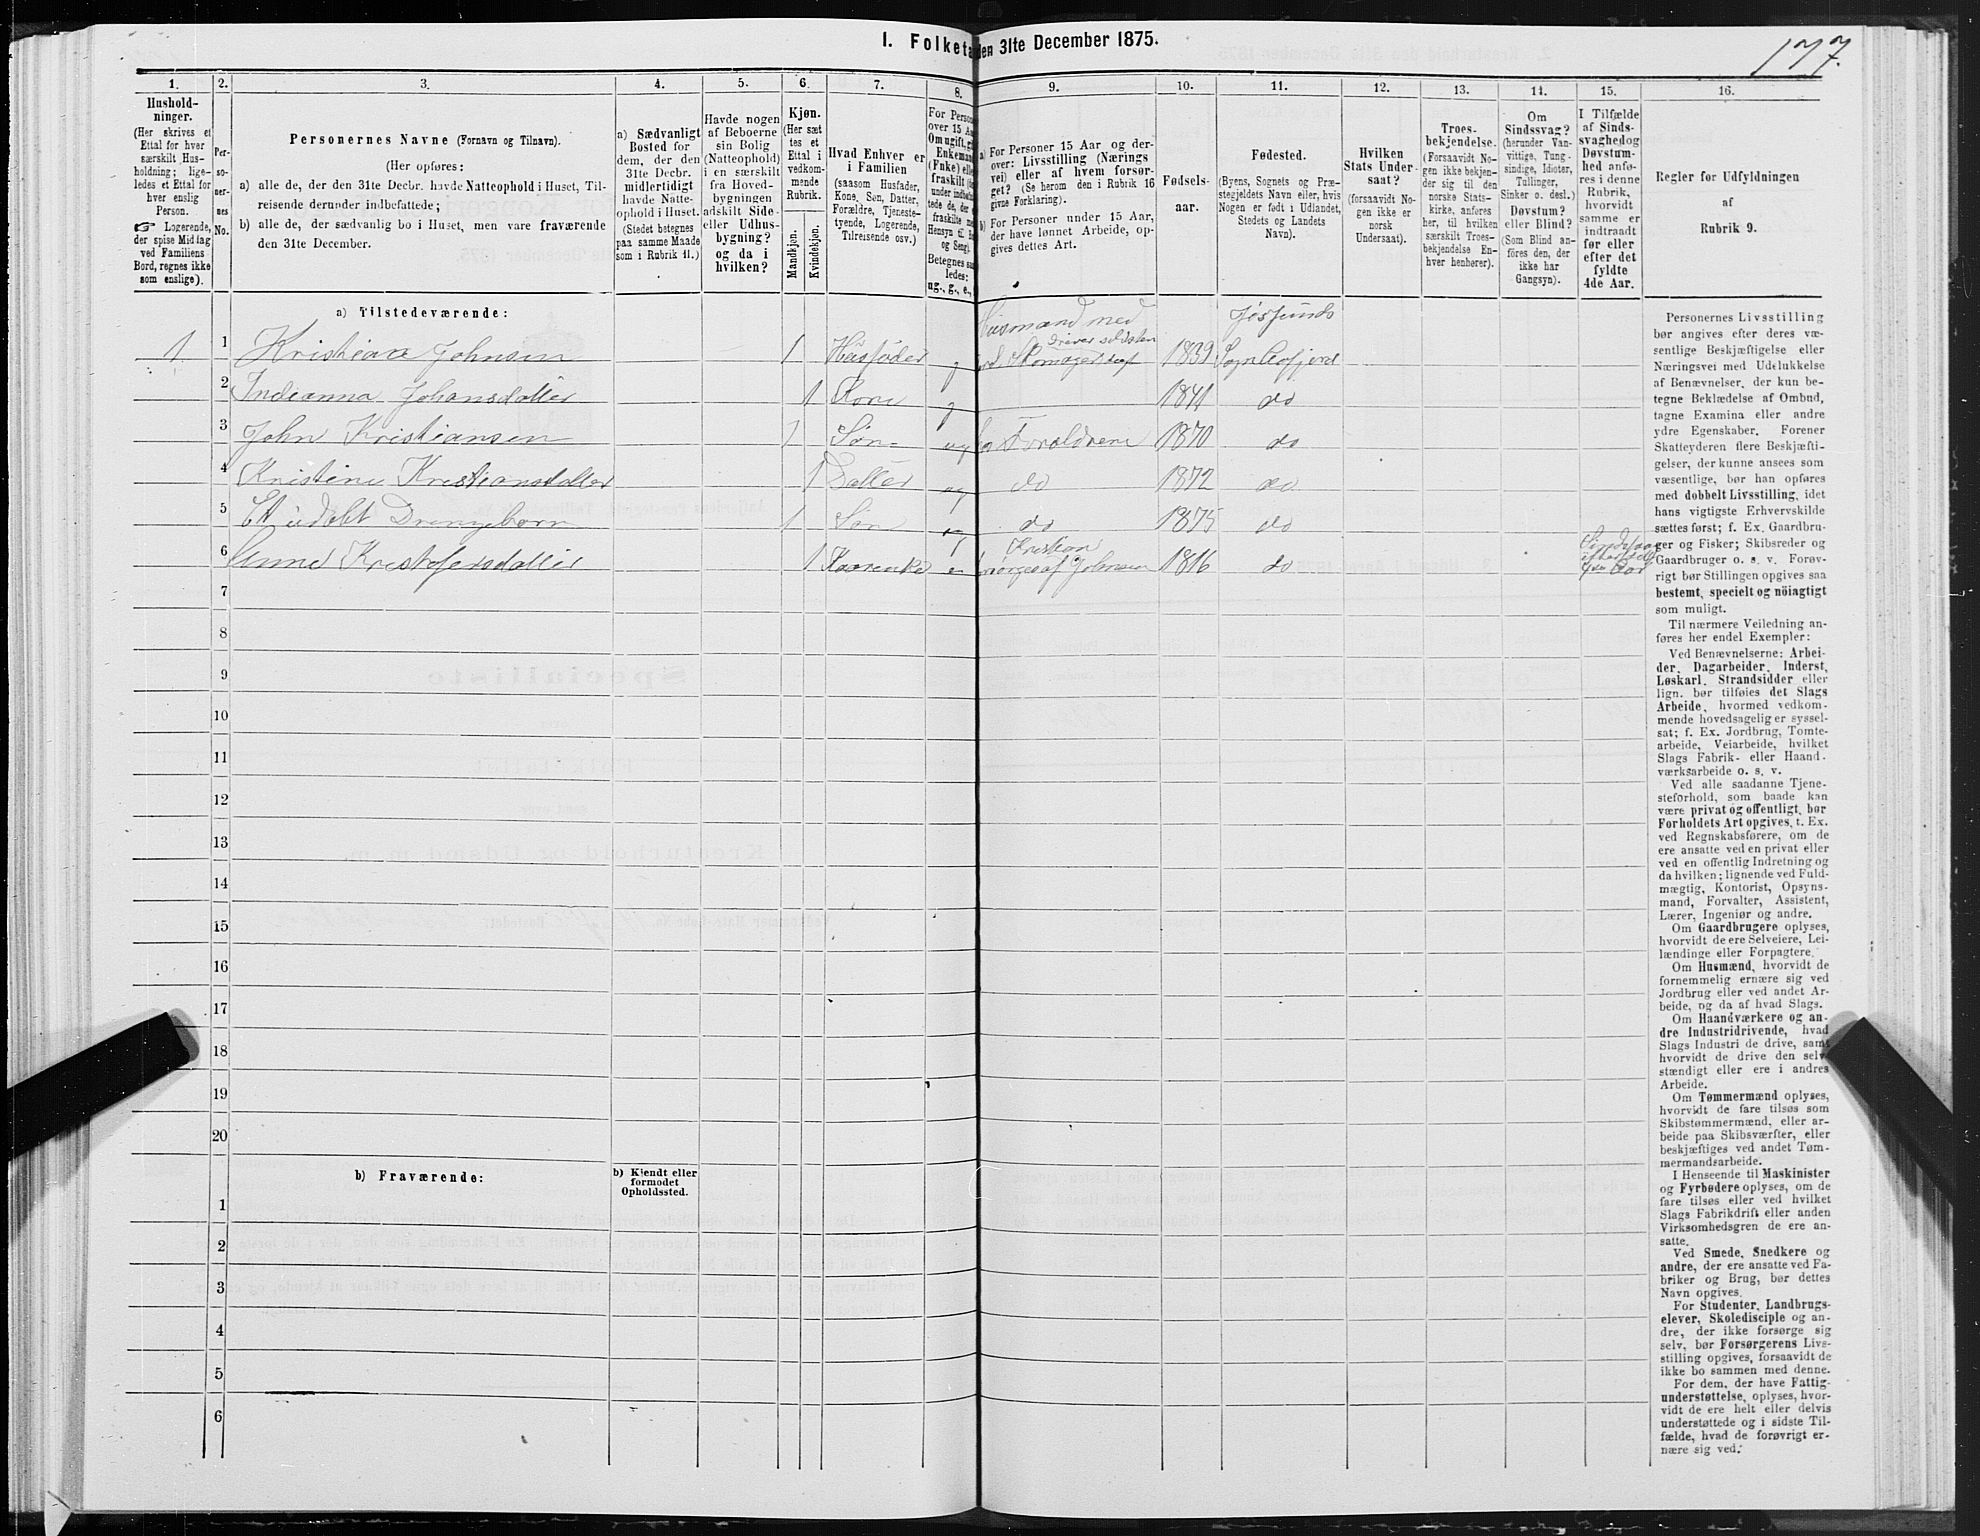 1. Folketæ
den 31te December 1875.
177.
1.
2.
3.
4.
5.
6.
7.
8.
9.
10.
11.
12.
13.
14.
15.
16.
Hushold-
ninger.
(Her skrives et
Ettal for hver
særskilt Hus-
holdning; lige-
ledes et Ettal for
hver enslig
Person.
☞ Logerende,
der spise Middag
ved Familiens
Bord, regnes ikke
som enslige).
Per-
so-
ner-
nes
No.
Personernes Navne (Fornavn og Tilnavn).
(Her opføres:
a) alle de, der den 31te Decbr. havde Natteophold i Huset, Til-
reisende derunder indbefattede;
b) alle de, der sædvanlig bo i Huset, men vare fraværende
den 31te December.
a) Sædvanligt
Bosted for
dem, der den
31te Decbr.
midlertidigt
havde Natte-
ophold i Huset.
(Stedet betegnes
paa samme Maade
som i Rubrik 11.)
Havde nogen
af Beboerne
sin Bolig
(Natteophold)
i en særskilt
fra Hoved-
bygningen
adskilt Side-
eller Udhus-
bygning?
og da i
hvilken?
Kjøn.
(Her sæt
tes et
Ettal i
vedkom-
mende
Rubrik.
Mandkjøn.
Kvindekjøn.
Hvad Enhver er
i Familien
(saasom Husfader,
Kone, Søn, Datter,
Forældre, Tjeneste-
tyende, Logerende,
Tilreisende osv.)
For Person
over 15 Aa
Om ugift, gif
Enkemand
(Enke) elle
fraskilt
under indbefat-
tede de, der
fraskilte m
Hensyn til Bo
og Seng).
Betegnes saa
ledes:
ug., g., e.,
a) For Personer 15 Aar og der-
over: Livsstilling (Nærings
vei) eller af hvem forsør-
get? (Se herom den i Rubrik 16
givne Forklaring).
b) For Personer under 15 Aar,
der have lønnet Arbeide, op-
gives dettes Art.
Fødsels-
aar.
Fødested.
(Byens, Sognets og Præ-
stegjeldets Navn eller, hvis
Nogen er født i Udlandet,
Stedets og Landets
Navn).
Hvilken
Stats Under-
saat?
(forsaavidt No-
gen ikke er
norsk
Undersaat).
Troes-
bekjendelse.
(Forsaavidt No-
gen ikke bekjen-
der sig til den
norske Stats-
kirke, anføres
her, til hvilken
særskilt Troes-
bekjendelse En-
hver henhører).
Om
Sindssvag?
(herunder Van-
vittige, Tung-
sindige, Idioter,
Tullinger,
Sinker o. desl.)
Døvstum?
eller Blind?
(Som Blind an-
føres den, der
ikke har
Gangsyn).
I Tilfælde
af Sinds-
svaghed og
Døvstum-
hed anfø-
res i denne
Rubrik,
hvorvidt
samme er
indtraadt
før eller
efter det
fyldte
4de Aar.
Regler for Udfyldningen
af
Rubrik 9.
a) Tilstedeværende:
Husmand med
driver selvsten
Jøsfunds
1 1 Kristian Johnsen 1 Husfader g Jord Skomagerhaf 1839
2 Indianna Johansdatter 1 Kone g 1841 do
3 John Kristiansen 1 Søn ug hos Forældrene 1870 do
4 Kristine Kristiansdatter 1 Datter ug do 1872 do
5 Et udøbt Drengebarn 1 Søn ug do 1875 do
Kristian
6 Anne Kristofersdatter 1 e forsørges af Johnsen 1816 do
4de Aar
7
8
9
10
11
12
13
14
15
16
17
18
19
20
b) Fraværende:
b) Kjendt eller
formodet
Opholdssted.
1
2
3
4
5
6
Personernes Livsstilling
bør angives efter deres væ-
sentlige Beskjæftigelse eller
Næringsvei med Udelukkelse
af Benævnelser, der kun be-
tegne Beklædelse af Ombud,
tagne Examina eller andre
ydre Egenskaber. Forener
Skatteyderen flere Beskjæfti-
gelser, der kunne ansees som
væsentlige, bør han opføres
med dobbelt Livsstilling, idet
hans vigtigste Erhvervskilde
sættes først; f. Ex. Gaardbru-
ger og Fisker; Skibsreder og
Gaardbruger o. s. v. Forøv-
rigt bør Stillingen opgives saa
bestemt, specielt og nöiagtigt
som muligt.
Til nærmere Veiledning an-
føres her endel Exempler:
Ved Benævnelserne: Arbei-
der, Dagarbeider, Inderst,
Løskarl, Strandsidder eller
lign. bør tilføies det Slags
Arbeide, hvormed vedkom-
mende hovedsagelig er syssel-
sat; f. Ex. Jordbrug, Tomte-
arbeide, Veiarbeide, hvilket
Slags Fabrik- eller Haand-
værksarbeide o. s. v.
Ved alle saadanne Tjene-
steforhold, som baade kan
være privat og offentligt, bør
Forholdets Art opgives, t. Ex.
ved Regnskabsførere, om de
ere ansatte ved en privat eller
ved en offentlig Indretning og
da hvilken; lignende ved Fuld-
mægtig, Kontorist, Opsyns-
mand, Forvalter, Assistent,
Lærer, Ingeniør og andre.
Om Gaardbrugere oplyses,
hvorvidt de ere Selveiere, Lei-
lændinge eller Forpagtere.
Om Husmænd, hvorvidt de
fornemmelig ernære sig ved
Jordbrug eller ved andet Ar-
beide, og da af hvad Slags.
Om Haandværkere og an-
dre Industridrivende, hvad
Slags Industri de drive, samt
hvorvidt de drive den selv-
stændigt eller ere i andres
Arbeide.
Om Tømmermænd oplyses,
hvorvidt de fare tilsøs som
Skibstømmermænd, eller ar-
beide paa Skibsværfter, eller
beskjæftiges ved andet Tøm-
mermandsarbeide.
I Henseende til Maskinister
og Fyrbødere oplyses, om de
fare tilsøs eller ved hvilket
Slags Fabrikdrift eller anden
Virksomhedsgren de ere an-
satte.
Ved Smede, Snedkere og
andre, der ere ansatte ved Fa-
briker og Brug, bør dettes
Navn opgives.
For Studenter, Landbrugs-
elever, Skoledisciple og an-
dre, der ikke forsørge sig
selv, bør Forsørgerens Livs-
stilling opgives, forsaavidt de
ikke bo sammen med denne.
For dem, der have Fattig-
understøttelse, oplyses, hvor-
vidt de ere helt eller delvis
understøttede og i sidste Til-
fælde, hvad de forøvrigt er-
nære sig ved.